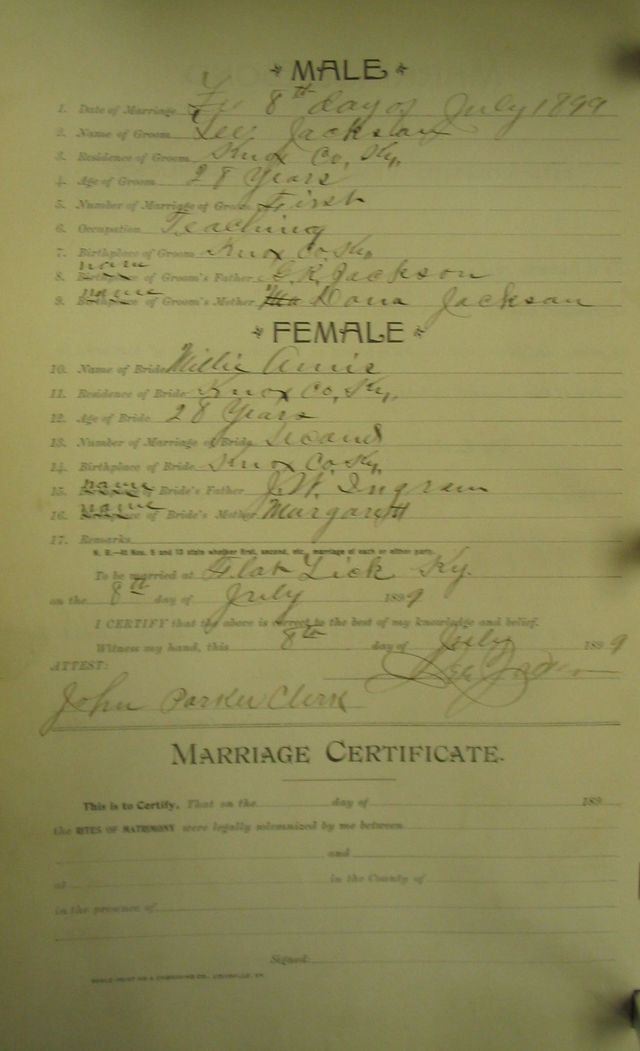 MALE
1. Date of Marriage 8th day of July 1899
2. Name of Groom Lee Jackson
3. Residence of Groom Knox Co, Ky,
4. Age of Groom 28 Years
5. Number of Marriage of Groom First
6. Occupation Teaching
7. Birthplace of Groom Knox Co, Ky,
8. name Birthplace of Groom's Father Jackson
9. name Birthplace of Groom's Mother Dona Jackson
FEMALE
10. Name of Bride Millie Amis
11. Residence of Bride Knox Co, Ky,
12. Age of Bride 28 Years
13. Number of Marriage of Bride Second
14. Birthplace of Bride Knox Co, Ky,
15. name Birthplace of Bride's Father J. W. Ingram
16. name Birthplace of Bride's Mother Margarett
17. Remarks
N. B.—At Nos. 5 and 13 state whether first, second, etc., marriage of each or either party.
To be married at Flat Lick Ky.
on the 8th day of July 1899
I CERTIFY that the above is correct to the best of my knowledge and belief.
Witness my hand, this 8th day of July 1899
ATTEST:
Lee
John Parker Clerk
MARRIAGE CERTIFICATE.
This is to Certify, That on the day of 189
the RITES OF MATRIMONY were legally solemnized by me between
and
at in the County of
in the presence of
Signed: